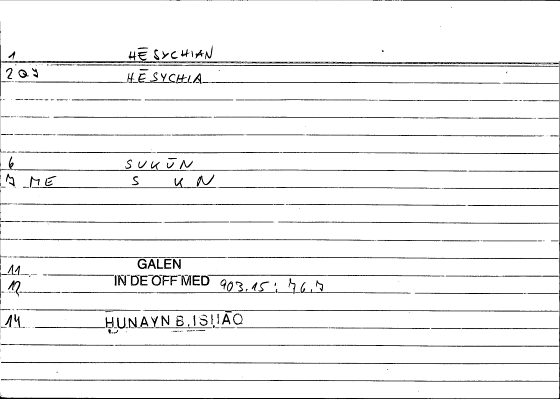 1 HĒSYCHIAN
2 QY HĒSYCHIA
6 SUKŪN
7 ME S K N
11 GALEN
12 IN DE OFF MED 903.15 : 76.7
14 ḤUNAYN B. ISḤĀQ